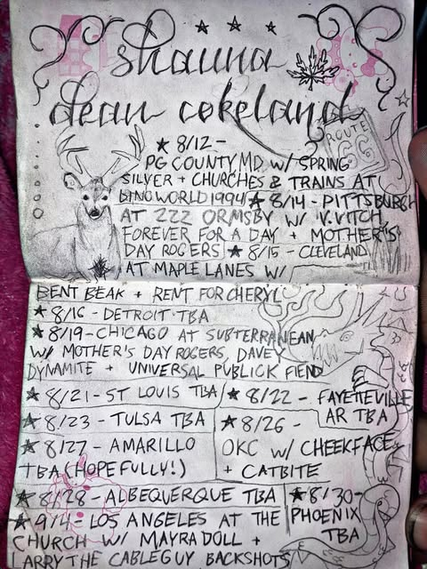 shauna
dean cokeland
ROUTE
66
★ 8/12 -
PG COUNTY MD W/ SPRING
SILVER + CHURCHES & TRAINS AT
DINO WORLD 1994 ★ 8/14 - PITTSBURGH
AT 222 ORMSBY W/ V.VITCH,
FOREVER FOR A DAY + MOTHER'S
DAY ROGERS ★ 8/15 - CLEVELAND
AT MAPLE LANES W/
BENT BEAK + RENT FOR CHERYL
★ 8/16 - DETROIT TBA
★ 8/19 - CHICAGO AT SUBTERRANEAN
W/ MOTHER'S DAY ROGERS, DAVEY
DYNAMITE + UNIVERSAL PUBLICK FIEND
★ 8/21 - ST LOUIS TBA
★ 8/22 - FAYETTEVILLE
AR TBA
★ 8/23 - TULSA TBA
★ 8/26 -
OKC W/ CHEEKFACE
+ CATBITE
★ 8/27 - AMARILLO
TBA (HOPEFULLY!)
★ 8/28 - ALBEQUERQUE TBA
★ 8/30 -
PHOENIX
TBA
★ 9/4 - LOS ANGELES AT THE
CHURCH W/ MAYRA DOLL +
LARRY THE CABLE GUY BACKSHOTS